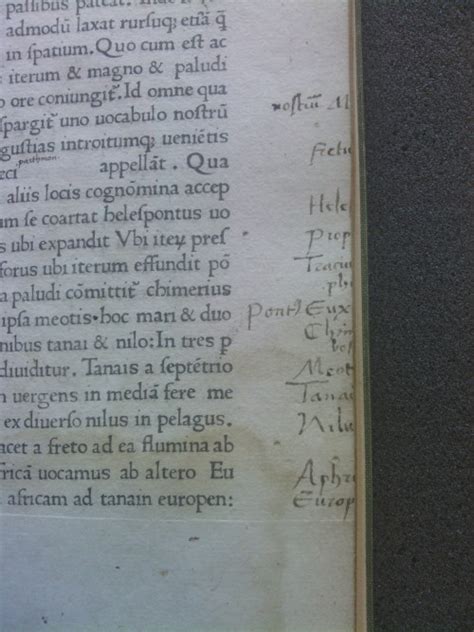 passibus patcat. Inde
admodū laxat rursuq; etiā q̄
in spatium. Quo cum est ac
iterum & magno & paludi
ore coniungit. Id omne qua
spargit uno uocabulo nostrū
gustias introitumq; ueniētis
eci porthmon appellāt. Qua
aliis locis cognōmina accep
m se coartat helespontus uo
s ubi expandit Vbi iteɤ pres
forus ubi iterum effundit pō
a paludi cōmittit chimerius
ipsa meotis. hoc mari & duo
nibus tanai & nilo: In tres p
diuiditur. Tanais a septētrio
n uergens in mediā fere me
ex diuerso nilus in pelagus.
acet a freto ad ea flumina ab
fricā uocamus ab altero Eu
africam ad tanain europen:
nostrū M
fretu
Hele
Prop
Pont Eux
Meot
Tanai
Nilu
Aphri
Europ